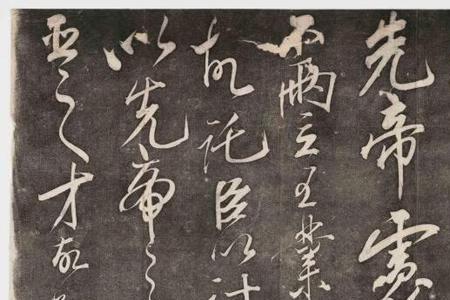 先帝慮
不兩立王業
故託臣以討
以先帝之
臣之才故